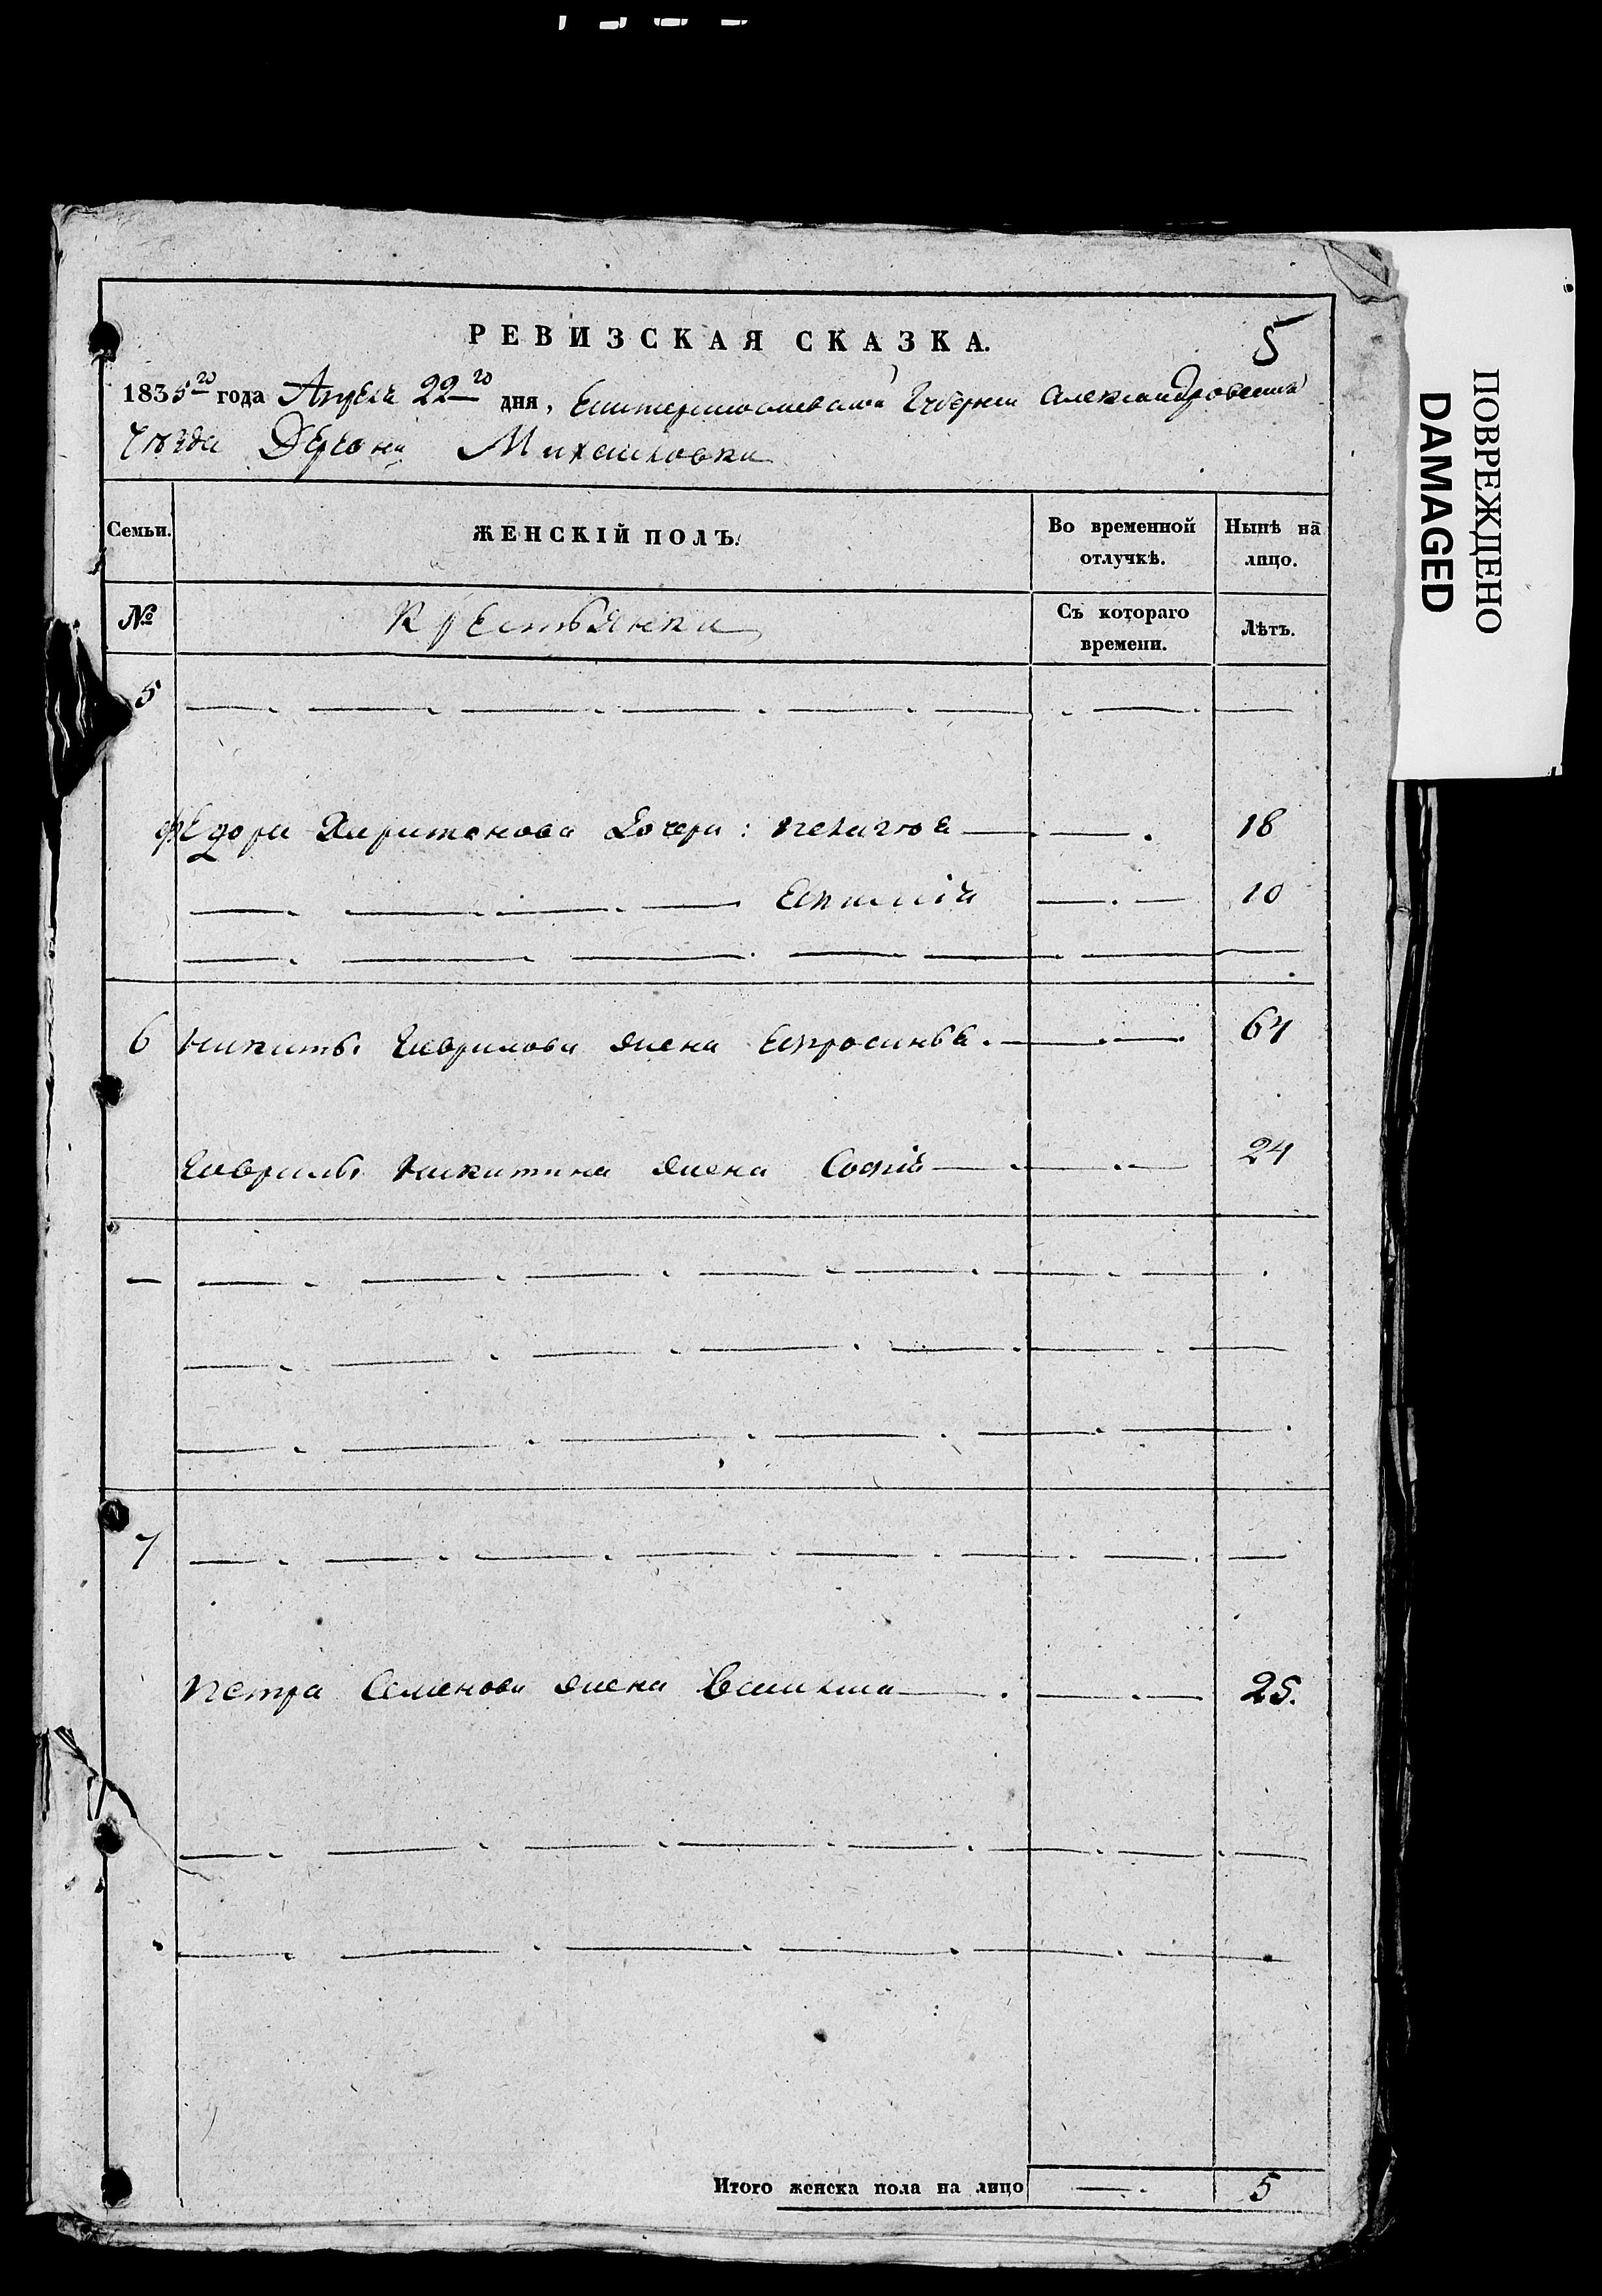 РЕВИЗСКАЯ СКАЗКА.
5
1835го года Апреля 22го дня, Екатеринославской Губернии Александровского
уезда Деревни Михайловки
Семьи. ЖЕНСКІЙ ПОЛЪ. Во временной отлучкѣ. Нынѣ на лицо.
№ Крестьянки Съ котораго времени. Лѣтъ.
5
Федора Харитонова дочери: Пелагея 18
10
6 Никиты Гаврилова жена Евросинья 64
Гаврилы Никитина жена Софія 24
7
Петра Семенова жена 25.
Итого женска пола на лицо 5
ПОВРЕЖДЕНО
DAMAGED